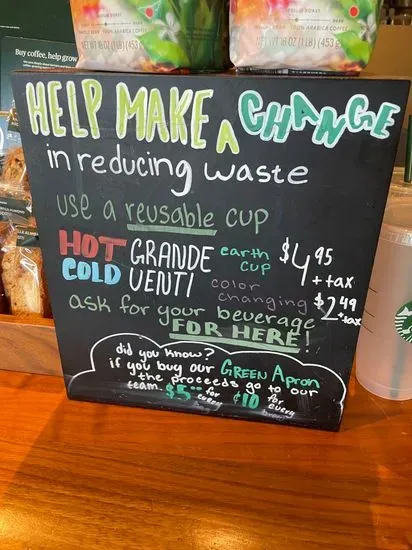 Buy coffee, help grow
MEDIUM ROAST
WHOLE BEAN 100% ARABICA COFFEE
NET WT 16 OZ (1 LB) (453
100% ARABICA COFFEE
NET WT 16 OZ (1 LB) (453 g)
HELP MAKE A CHANGE
in reducing waste
use a reusable cup
HOT GRANDE earth cup $4.95 + tax
COLD VENTI color changing $2.49 + tax
ask for your beverage
FOR HERE!
did you know?
if you buy our GREEN APRON
the proceeds go to our
team. $5.00 for every $10 for every